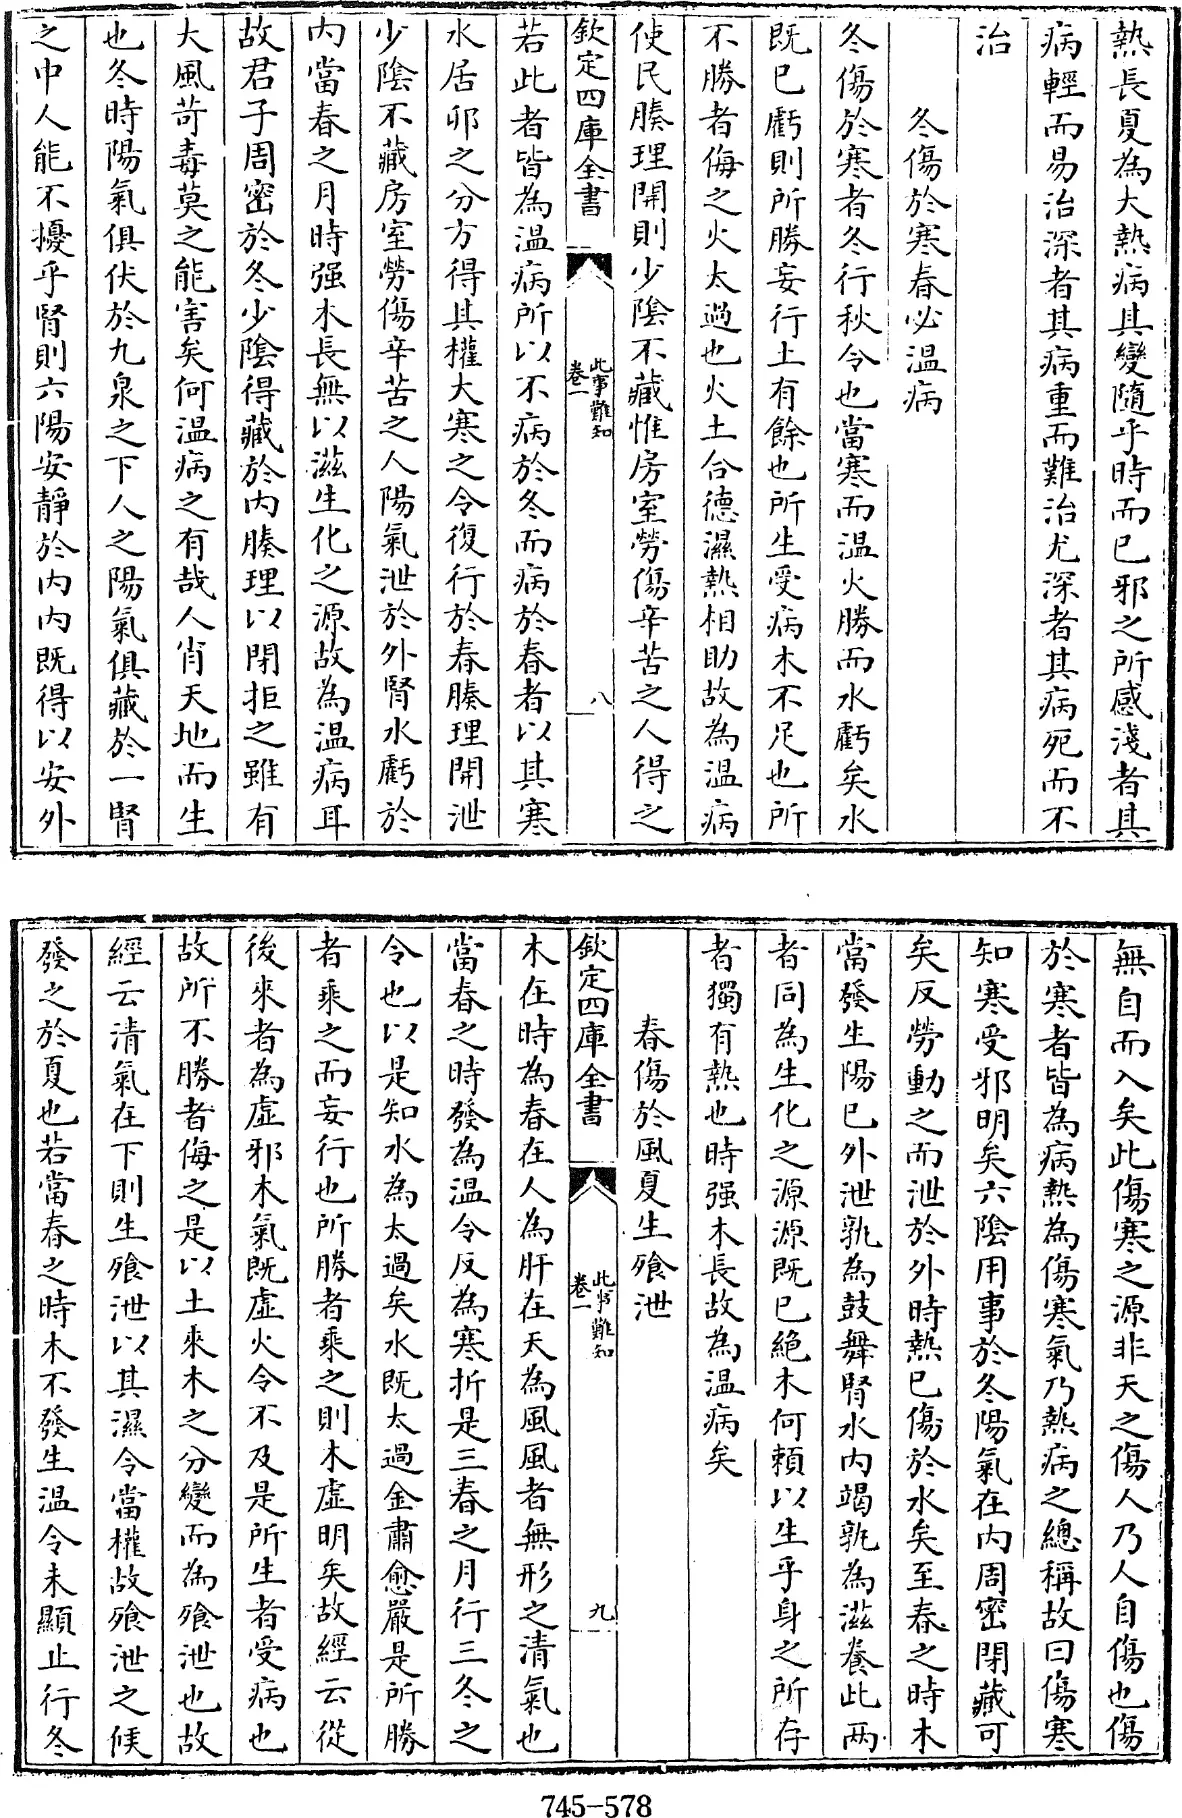 熱長夏為大熱病其變隨乎時而已邪之所感淺者其
病輕而易治深者其病重而難治尤深者其病死而不
治
冬傷於寒春必温病
冬傷於寒者冬行秋令也當寒而温火勝而水虧矣水
既已虧則所勝妄行土有餘也所生受病木不足也所
不勝者侮之火太過也火土合德濕熱相助故為温病
使民腠理開則少陰不藏惟房室勞傷辛苦之人得之
欽定四庫全書
此事難知
卷一
八
若此者皆為温病所以不病於冬而病於春者以其寒
水居卯之分方得其權大寒之令復行於春腠理開泄
少陰不藏房室勞傷辛苦之人陽氣泄於外腎水虧於
内當春之月時强木長無以滋生化之源故為温病耳
故君子周密於冬少陰得藏於内腠理以閉拒之雖有
大風苛毒莫之能害矣何温病之有哉人肖天地而生
也冬時陽氣俱伏於九泉之下人之陽氣俱藏於一腎
之中人能不擾乎腎則六陽安靜於内内既得以安外
無自而入矣此傷寒之源非天之傷人乃人自傷也傷
於寒者皆為病熱為傷寒氣乃熱病之總稱故曰傷寒
知寒受邪明矣六陰用事於冬陽氣在内周密閉藏可
矣反勞動之而泄於外時熱已傷於水矣至春之時木
當發生陽已外泄孰為鼓舞腎水内竭孰為滋養此两
者同為生化之源源既已絶木何頼以生乎身之所存
者獨有熱也時强木長故為温病矣
春傷於風夏生飱泄
欽定四庫全書
此事難知
卷一
九
木在時為春在人為肝在天為風風者無形之清氣也
當春之時發為温令反為寒折是三春之月行三冬之
令也以是知水為太過矣水既太過金肅愈嚴是所勝
者乘之而妄行也所勝者乘之則木虚明矣故經云從
後來者為虚邪木氣既虚火令不及是所生者受病也
故所不勝者侮之是以土來木之分變而為飱泄也故
經云清氣在下則生飱泄以其濕令當權故飱泄之候
發之於夏也若當春之時木不發生温令未顯止行冬
745-578